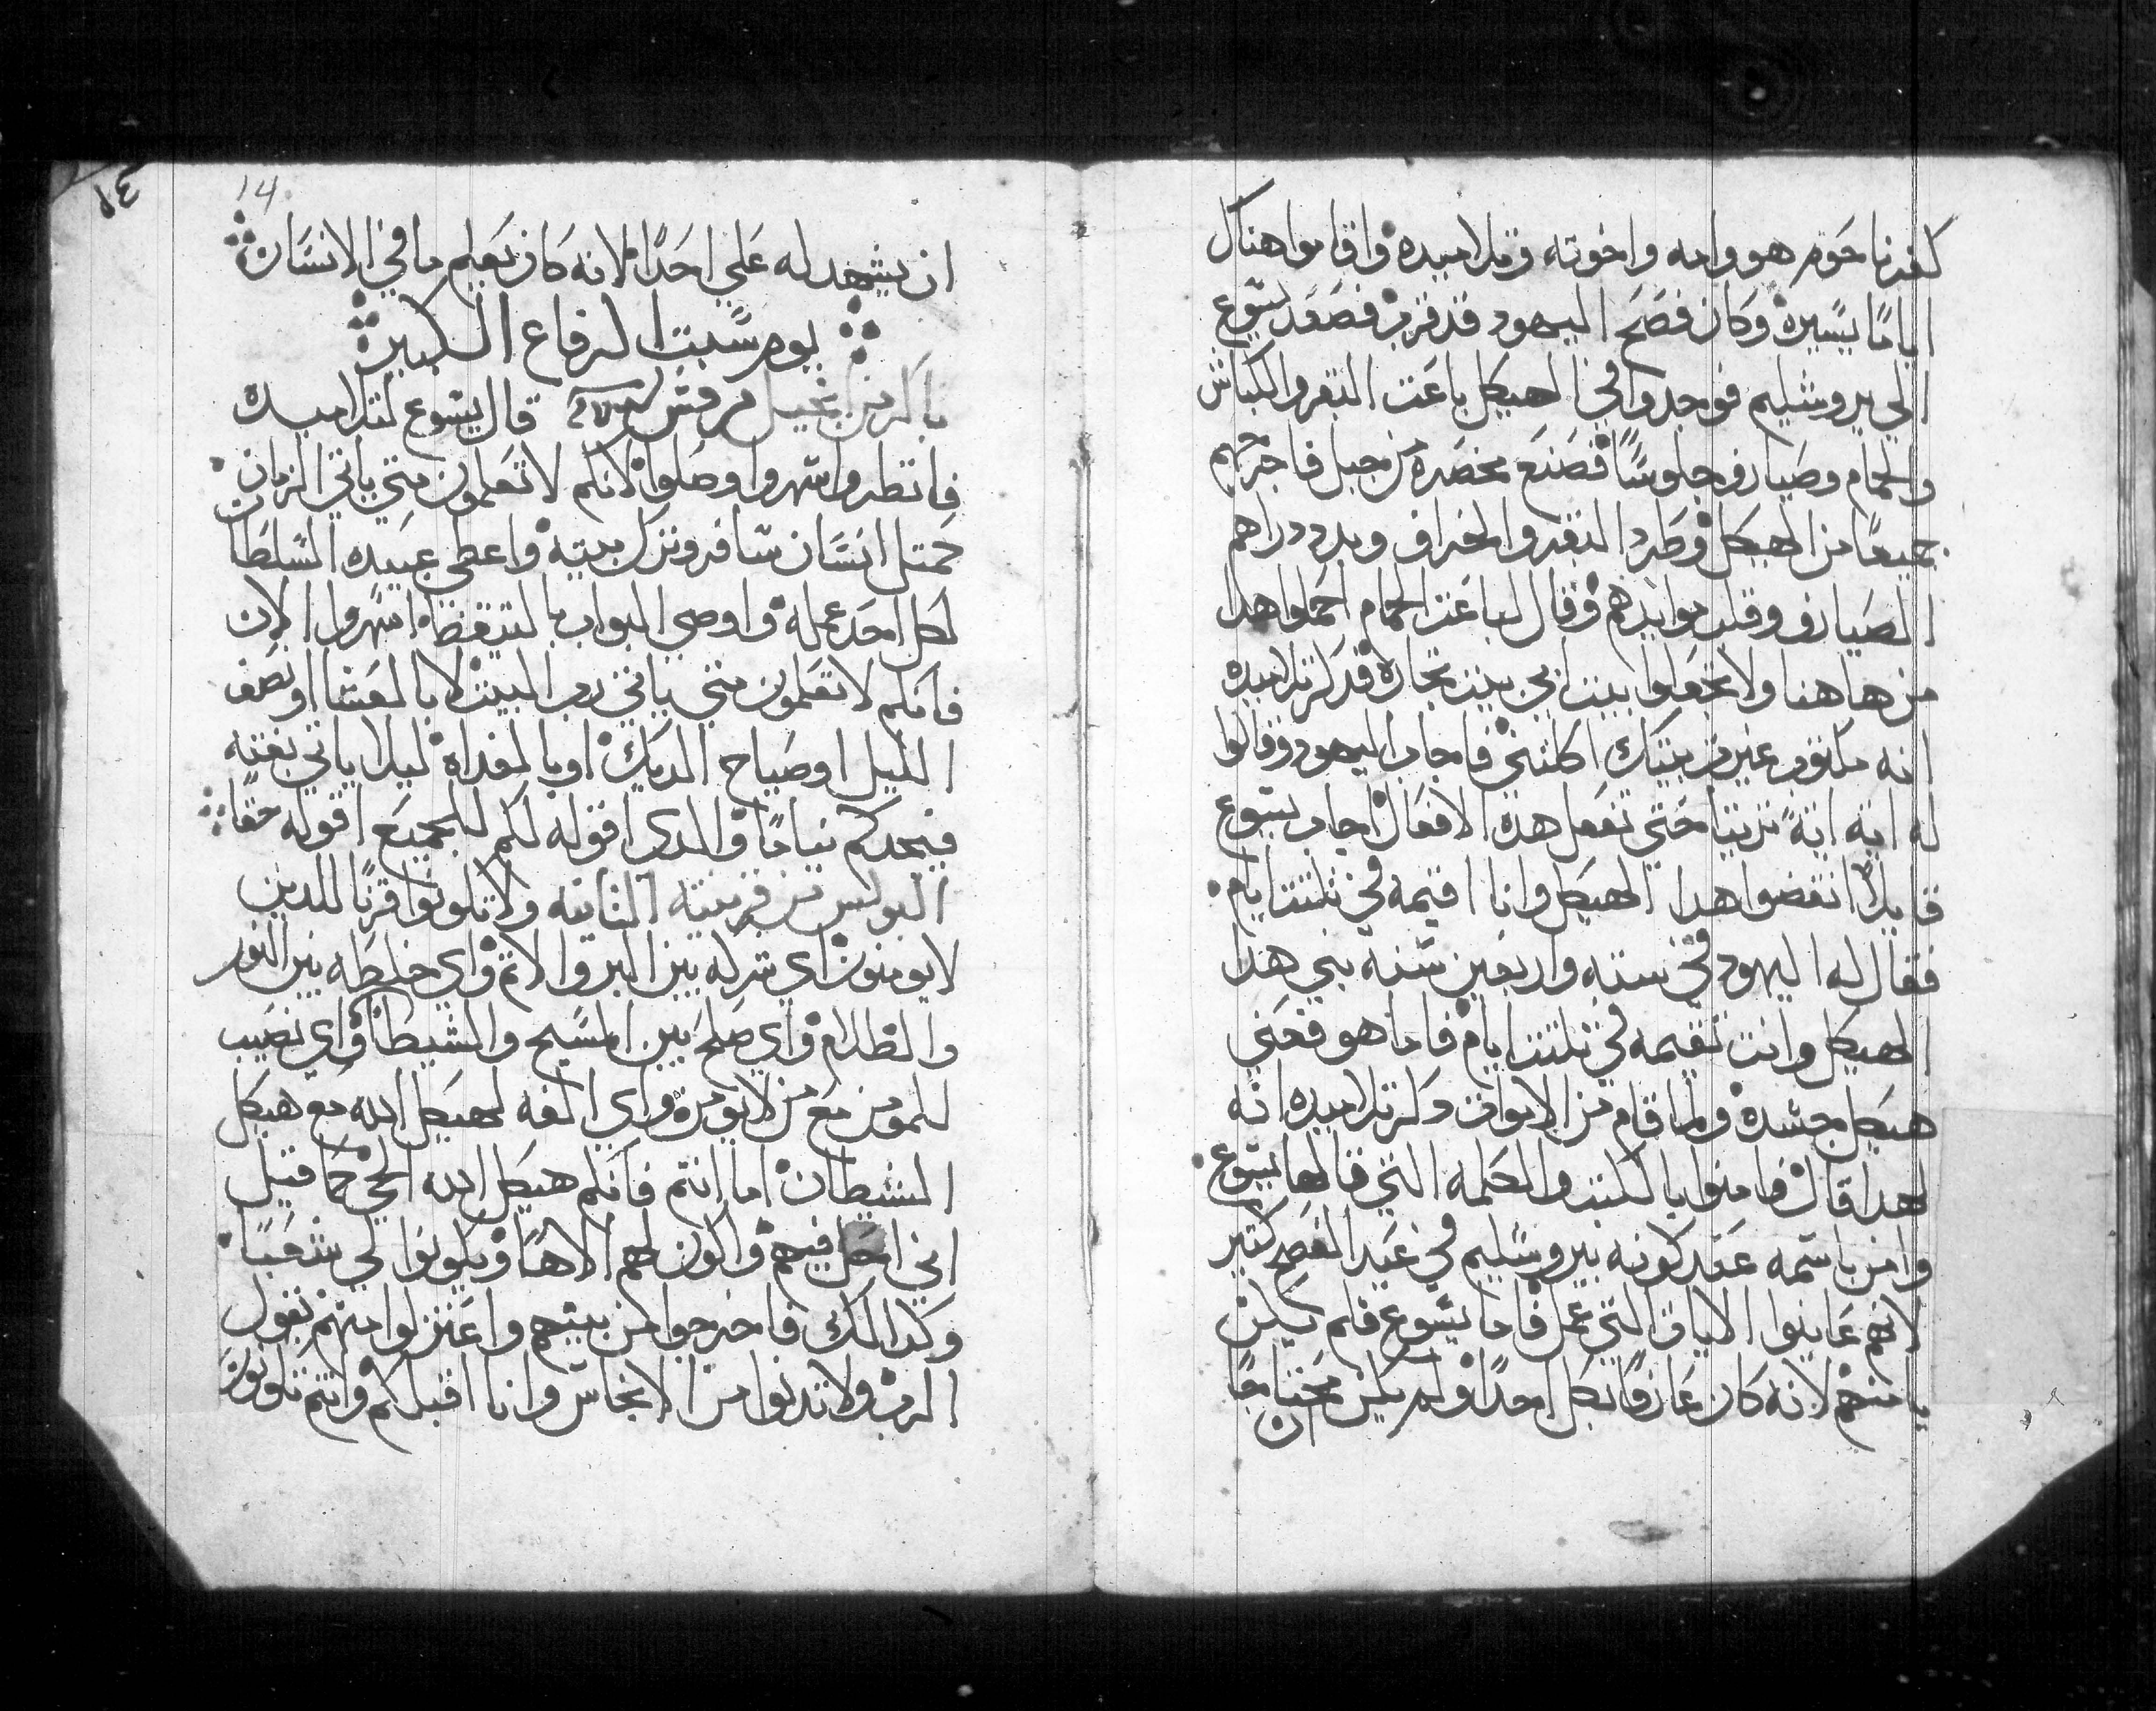 كفرناحوم هو وامه واخوته وتلاميده واقاموا هناك
اياما يسيره وكان فصح اليهود قد قرب فصعد يسوع
الي يروشليم فوجدوا في الهيكل باعت البقر والكباش
والحمام وصيارف جلوسا فصنع مخصره من حبل فاخرجهم
جميعا من الهيكل وطرد البقر والخراف وبدد دراهم
الصيارف وقلب موايدهم وقال لباعت الحمام احملوا هدا
من هاهنا ولا تجعلوا بيت ابي بيت تجاره فدكر تلاميده
انه مكتوب غيرت بيتك اكلتني فاجاب اليهود وقالوا
له ايه ايه ترينا حتي تفعل هده الافعال اجاب يسوع
قايلا انقضوا هدا الهيكل وانا اقيمه في تلتت ايام
فقال له اليهود في سته واربعين سنه بني هدا
الهيكل وانت تقيمه في تلتت ايام فاما هو فعني
هيكل جسده ولما قام من الاموات دكر تلاميده انه
لهدا قال فامنوا بالكتب والكلمه التي قالها يسوع
وامن باسمه عند كونه بيروشليم في عيد الفصح كتير
لانهم عاينوا الايات التي عمل فاما يسوع فلم يكن
يامنهم لانه كان عارفا بكل احدا ولم يكن محتاجا
ان
١٤
14
ان يشهد له علي احدا لانه كان يعلم ما في الانسان
يوم سبت الرفاع الكبير
باكر من انجيل مرقس قال يسوع لتلاميده
فانظروا واسهروا وصلوا لانكم لا تعلمون متي ياتي الزمان
كمتل انسان سافر ونزل بيته واعطي عبيده السلطان
لكل احد عمله واوصي البواب بالتيقظ اسهروا الان
فانكم لا تعلمون متي ياتي رب البيت لا بالعشا او نصف
الليل او صياح الديك او بالغداه ليلا ياتي بغته
فيجدكم نياما والدي اقوله لكم للجميع اقوله حقا
البولس من قرنتيه التانيه ولا تكونوا قرنا للدين
لا يومنون اي شركه بين البر والاتم واي خلطه بين النور
والظلام واي صلح بين المسيح والشيطان واي نصيب
للمومن مع من لا يومن واي الفه لهيكل الله مع هيكل
الشيطان اما انتم فانكم هيكل الله الحي كما قيل
اني احل فيهم واكون لهم الاها ويكونوا لي شعبا
وكدالك فاخرجوا من بينهم واعتزلوا منهم يقول
الرب ولا تدنوا من الانجاس وانا اقبلكم وانتم تكونون